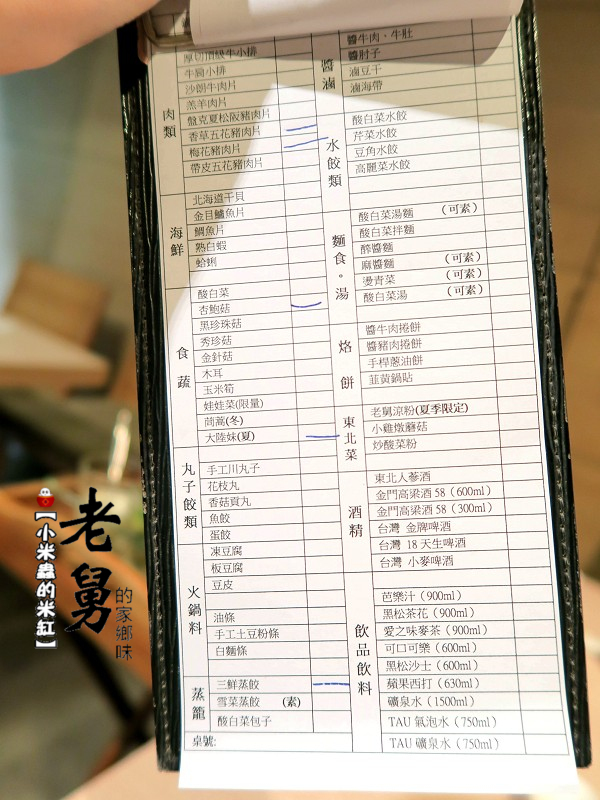 肉類
厚切頂級牛小排
牛腩小排
沙朗牛肉片
羔羊肉片
盤克夏松阪豬肉片
香草五花豬肉片
梅花豬肉片
帶皮五花豬肉片
海鮮
北海道干貝
金目鱸魚片
鯛魚片
熟白蝦
蛤蜊
食蔬
酸白菜
杏鮑菇
黑珍珠菇
秀珍菇
金針菇
木耳
玉米筍
娃娃菜(限量)
茼蒿(冬)
大陸妹(夏)
丸子餃類
手工川丸子
花枝丸
香菇貢丸
魚餃
蛋餃
火鍋料
凍豆腐
板豆腐
豆皮
油條
手工土豆粉條
白麵條
蒸籠
三鮮蒸餃
雪菜蒸餃 (素)
酸白菜包子
桌號:
醬滷
醬牛肉・牛肚
醬肘子
滷豆干
滷海帶
水餃類
酸白菜水餃
芹菜水餃
豆角水餃
高麗菜水餃
麵食。湯
酸白菜湯麵 (可素)
酸白菜拌麵
醡醬麵
麻醬麵 (可素)
燙青菜 (可素)
酸白菜湯 (可素)
烙餅
醬牛肉捲餅
醬豬肉捲餅
手桿蔥油餅
韮黄鍋貼
東北菜
老舅涼粉(夏季限定)
小雞燉蘑菇
炒酸菜粉
酒精
東北人蔘酒
金門高梁酒 58（600ml）
金門高梁酒 58（300ml）
台灣 金牌啤酒
台灣 18 天生啤酒
台灣 小麥啤酒
飲品飲料
芭樂汁（900ml）
黑松茶花（900ml）
愛之味麥茶（900ml）
可口可樂（600ml）
黑松沙士（600ml）
蘋果西打（630ml）
礦泉水（1500ml）
TAU 氣泡水（750ml）
TAU 礦泉水（750ml）
老舅
的家鄉味
【小米蟲的米缸】